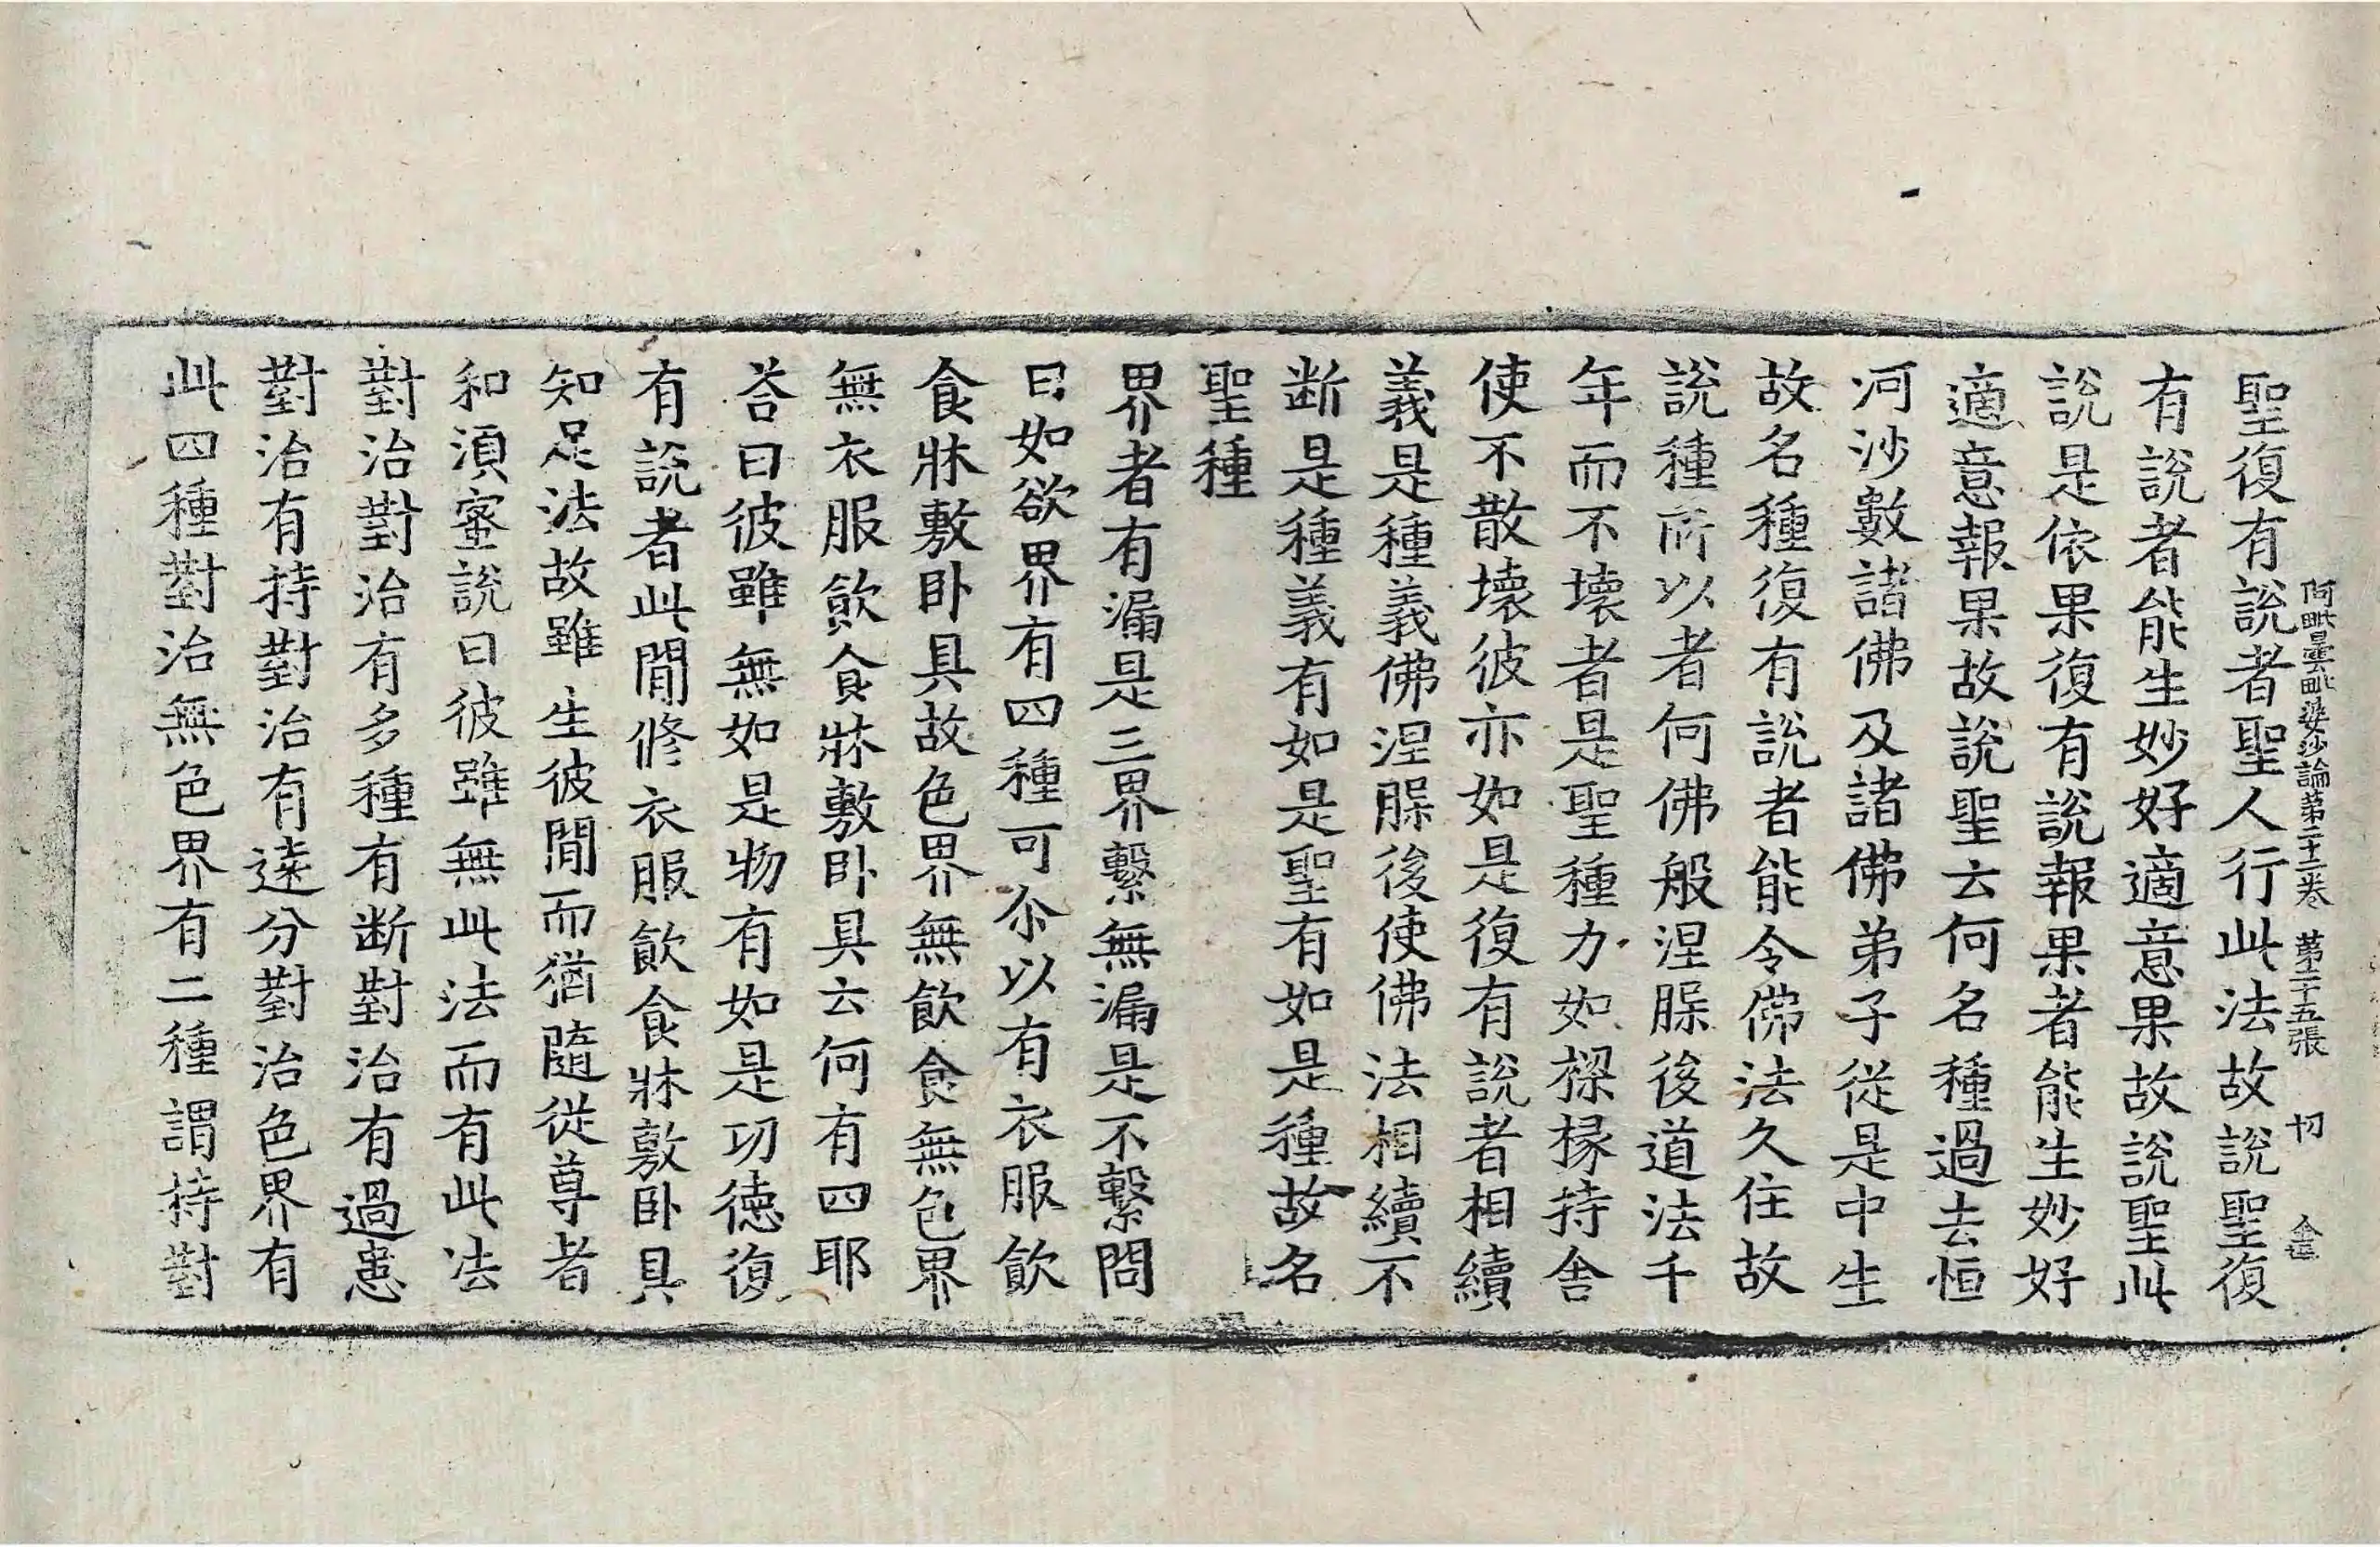 阿毗曇毗婆沙論第二十二卷 第二十五張 切
聖復有說者聖人行此法故說聖復
有說者能生妙好適意果故說聖此
說是依果復有說報果者能生妙好
適意報果故說聖云何名種過去恒
河沙數諸佛及諸佛弟子從是中生
故名種復有說者能令佛法久住故
說種所以者何佛般涅脲後道法千
年而不壞者是聖種力如樑椽持舍
使不散壞彼亦如是復有說者相續
義是種義佛涅脲後使佛法相續不
断是種義有如是聖有如是種故名
聖種
界者有漏是三界繫無漏是不繫問
曰如欲界有四種可尒以有衣服飲
食牀敷卧具故色界無飲食無色界
無衣服飲食牀敷卧具云何有四耶
荅曰彼雖無如是物有如是功德復
有說者此閒修衣服飲食牀敷卧具
知足法故雖生彼閒而猶隨從尊者
和湏蜜說曰彼雖無此法而有此法
對治對治有多種有断對治有過患
對治有持對治有遠分對治色界有
此四種對治無色界有二種謂持對